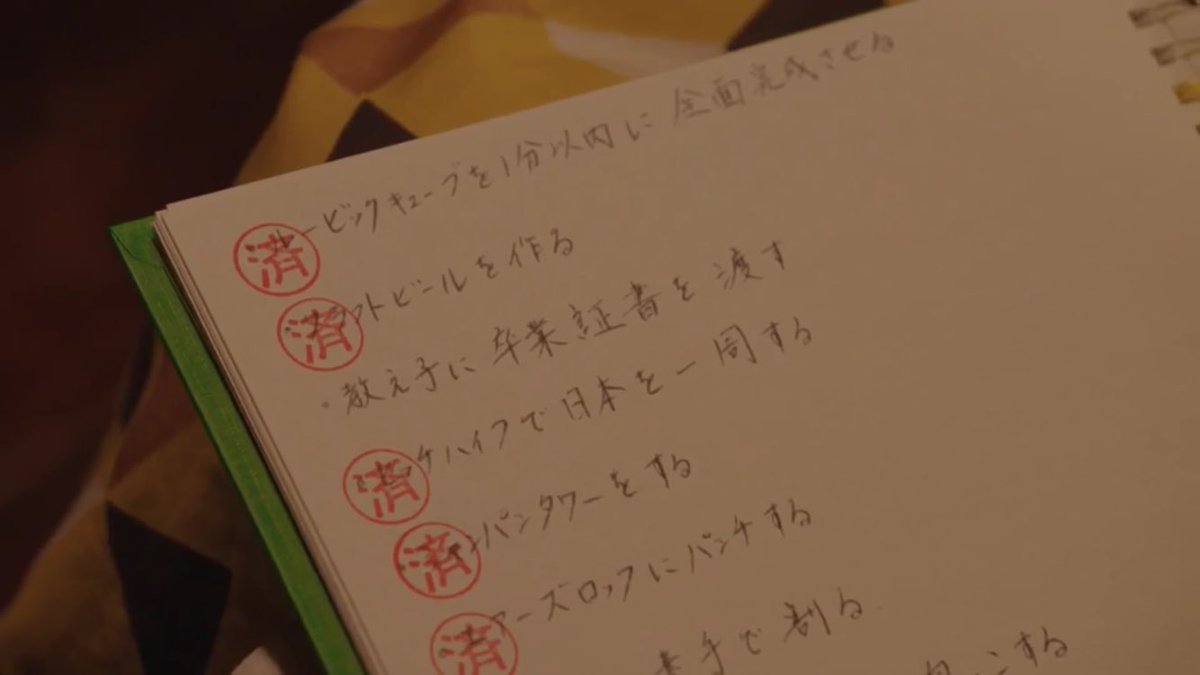 済ービックキューブを1分以内に全面完成させる
済フトビールを作る
・教え子に卒業証書を渡す
済ケハイクで日本を一周する
済ンパンタワーをする
済アーズロックにパンチする
素手で割る
する